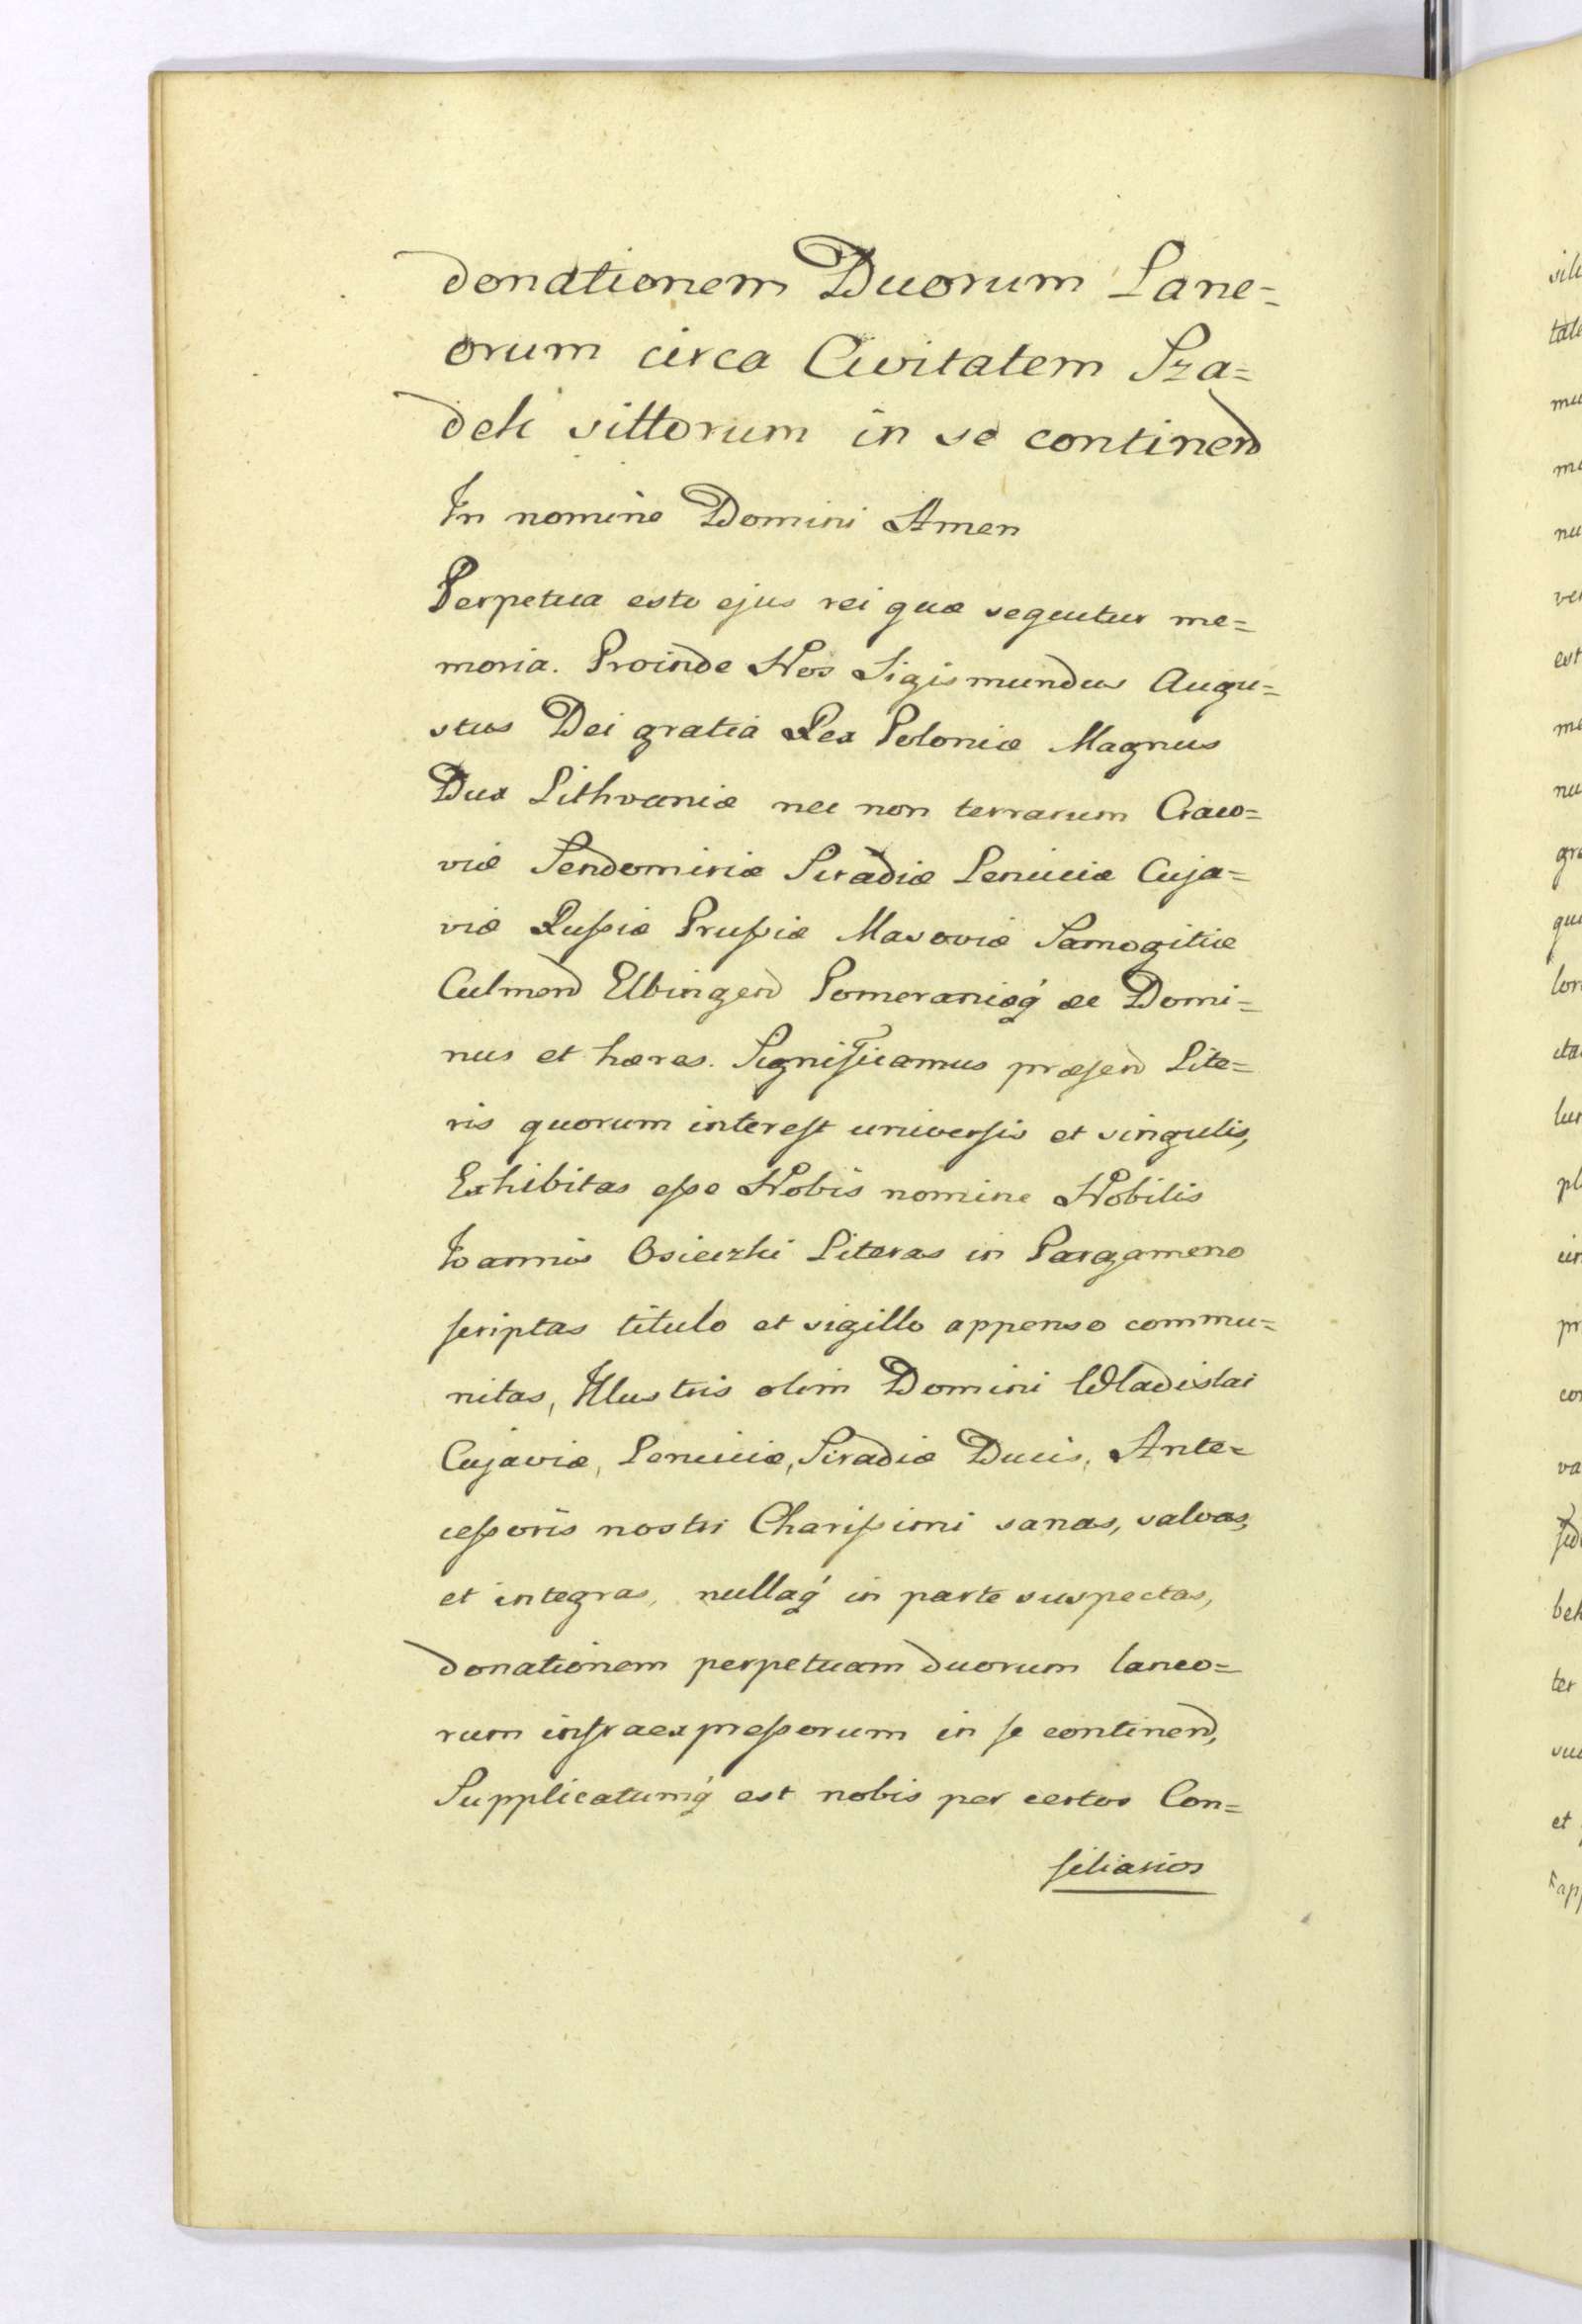 donationem Duorum Lane=
orum circa Civitatem Sza=
dek sittorum in se continen
In nomine Domini Amen
Perpetua esto ejus rei quæ sequutur me=
moria. Proinde Nos Sigismundus Augu=
stus Dei gratia Rex Poloniæ Magnus
Dux Lithvaniæ nec non terrarum Craco=
viæ Sendomiriæ Siradiæ Lenciciæ Cuja=
viæ Russiæ Prussiæ Masoviæ Samogitiæ
Culmen Elbingen Pomeraniæq́ ac Domi=
nus et hæres. Significamus præsen Lite=
ris quorum interest universis et singulis,
Exhibitas esse Nobis nomine Nobilis
Joannis Osieczki Literas in Pargameno
scriptas titulo et sigillo appenso commu=
nitas, Illustris olim Domini Wladislai
Cujaviæ, Lenciciæ, Siradiæ Ducis, Ante=
cessoris nostri Charissimi sanas, salvas,
et integras, nullaq́ in parte suspectas,
donationem perpetuam duorum laneo=
rum infraexpressorum in se continen,
Supplicatumq́ est nobis per certos Con=
siliarios